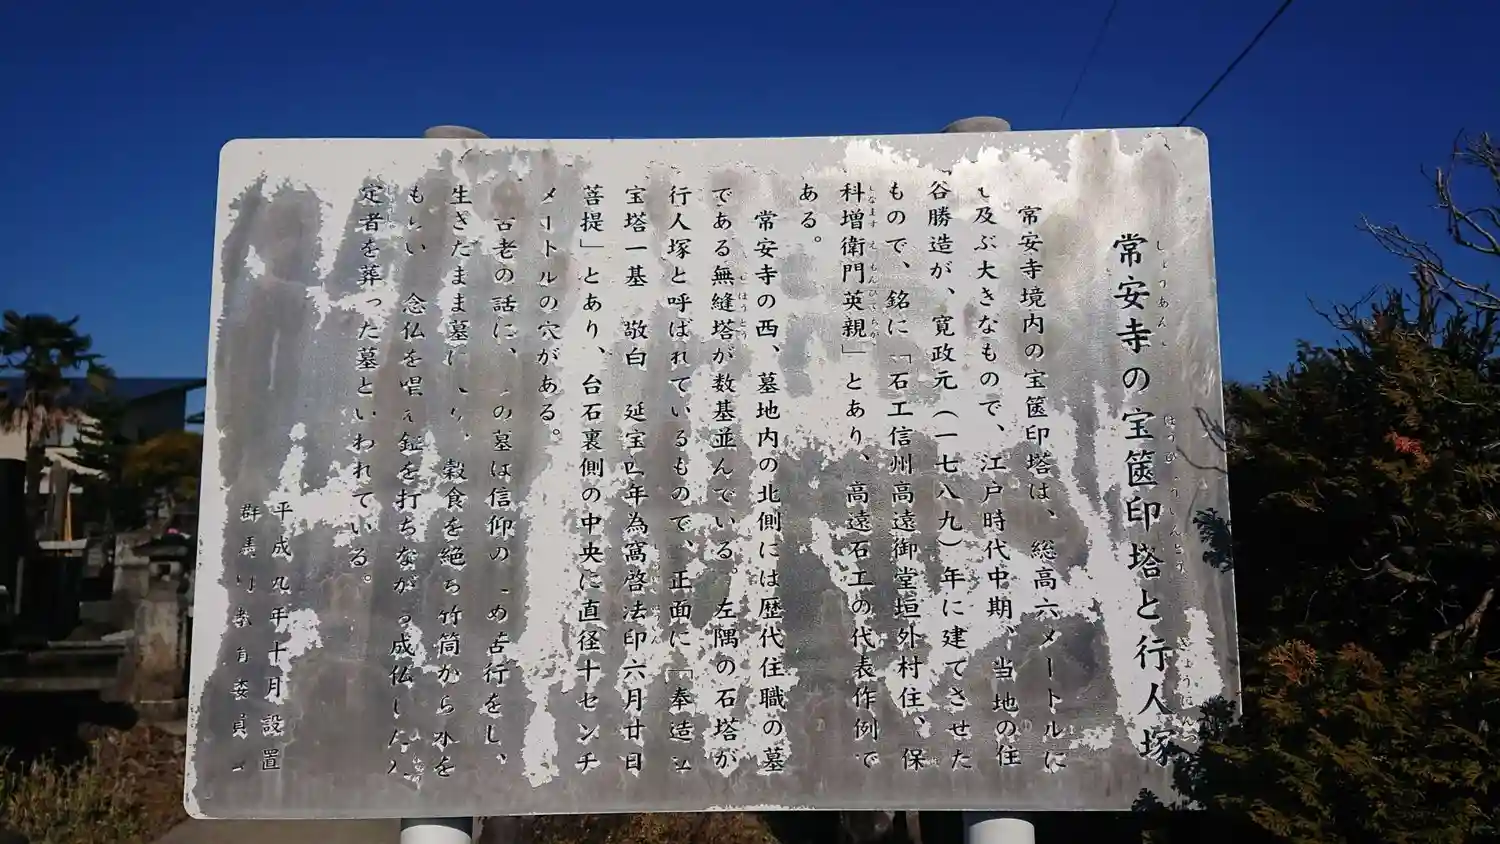 常安寺の宝篋印塔と行人塚
常安寺境内の宝篋印塔は、総高六メートルに
及ぶ大きなもので、江戸時代中期、当地の住
谷勝造が、寛政元(一七八九)年に建てさせた
もので、銘に「石工信州高遠御堂垣外村住、保
科増衛門英親」とあり、高遠石工の代表作例で
ある。
常安寺の西、墓地内の北側には歴代住職の墓
である無縫塔が数基並んでいる。左隅の石塔が
行人塚と呼ばれているもので、正面に「奉造立
宝塔一基 敬白 延宝四年為高啓法印六月廿日
菩提」とあり、台石裏側の中央に直径十センチ
メートルの穴がある。
古老の話に、の墓は信仰のめ苦行をし、
生きたまま墓に、穀食を絶ち竹筒から水を
もらい 念仏を唱え鉦を打ちながら成仏した
定者を葬った墓といわれている。
平成九年十月設置
群馬町教育委員